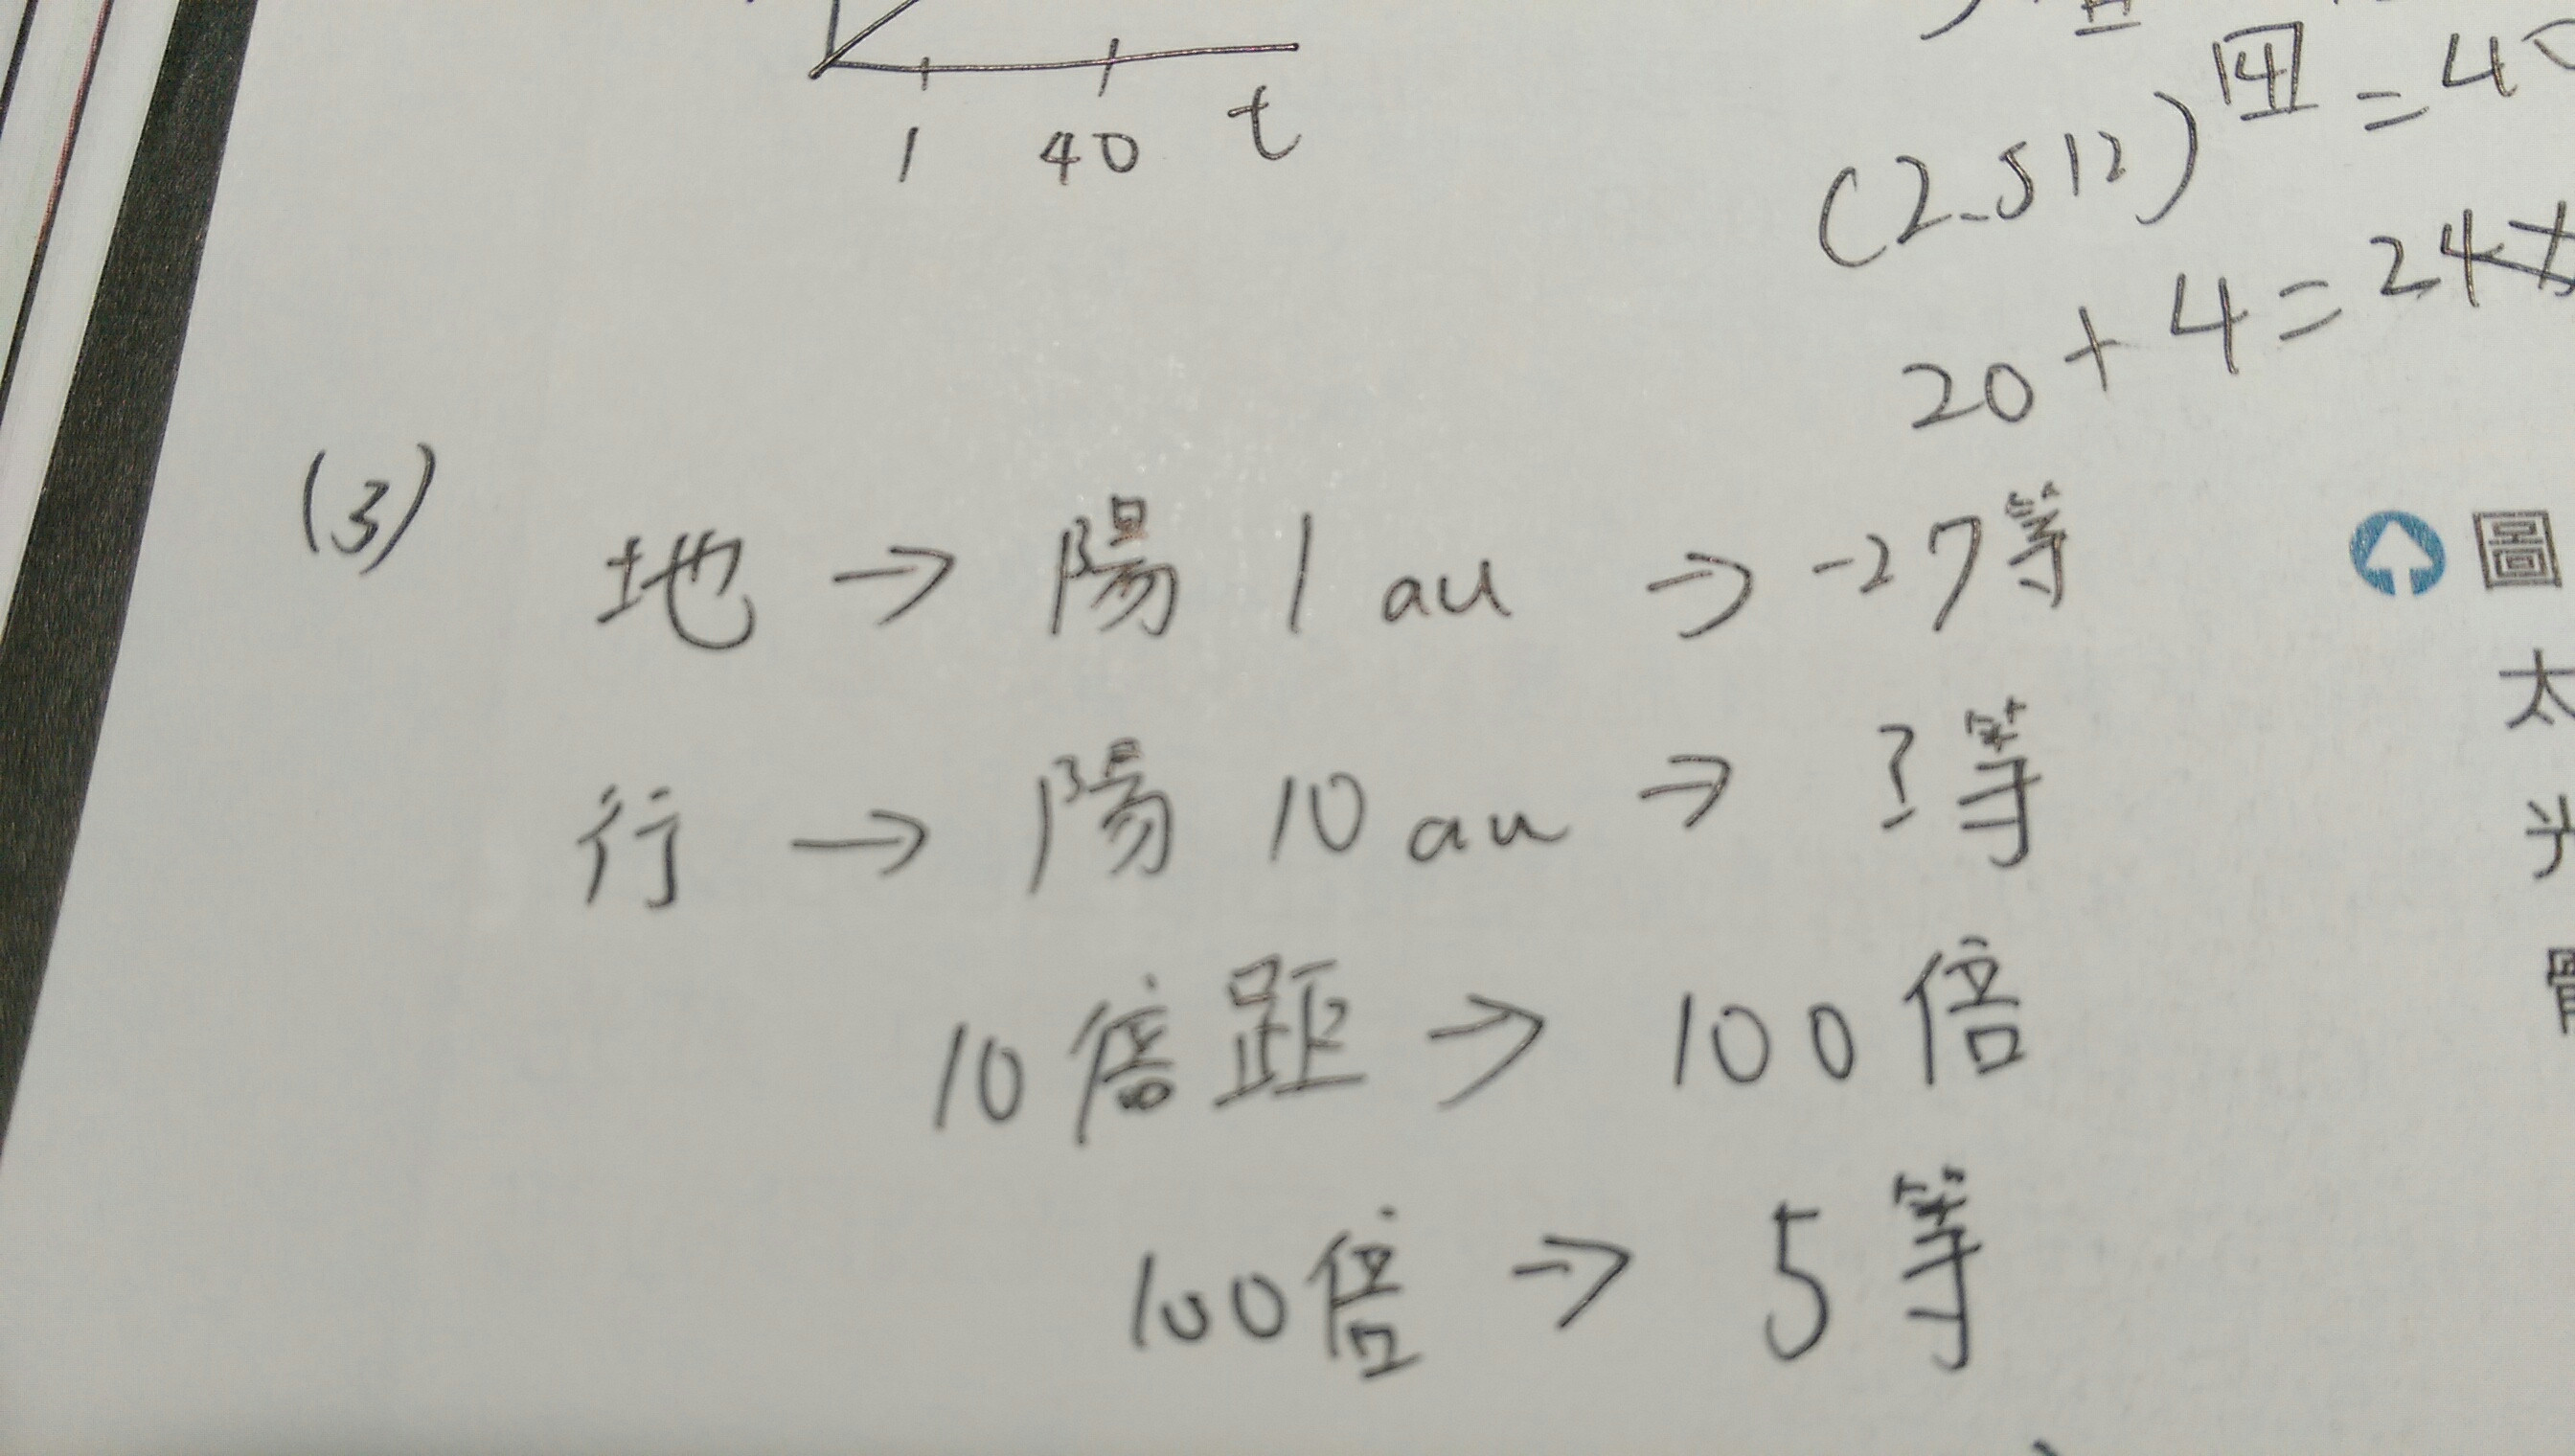 1 40 t
(2.512)^[4] = 40
20 + 4 = 24
(3)
地 → 陽 1 au → -27等
行 → 陽 10 au → ? 等
10倍距 → 100倍
100倍 → 5等
圖
太